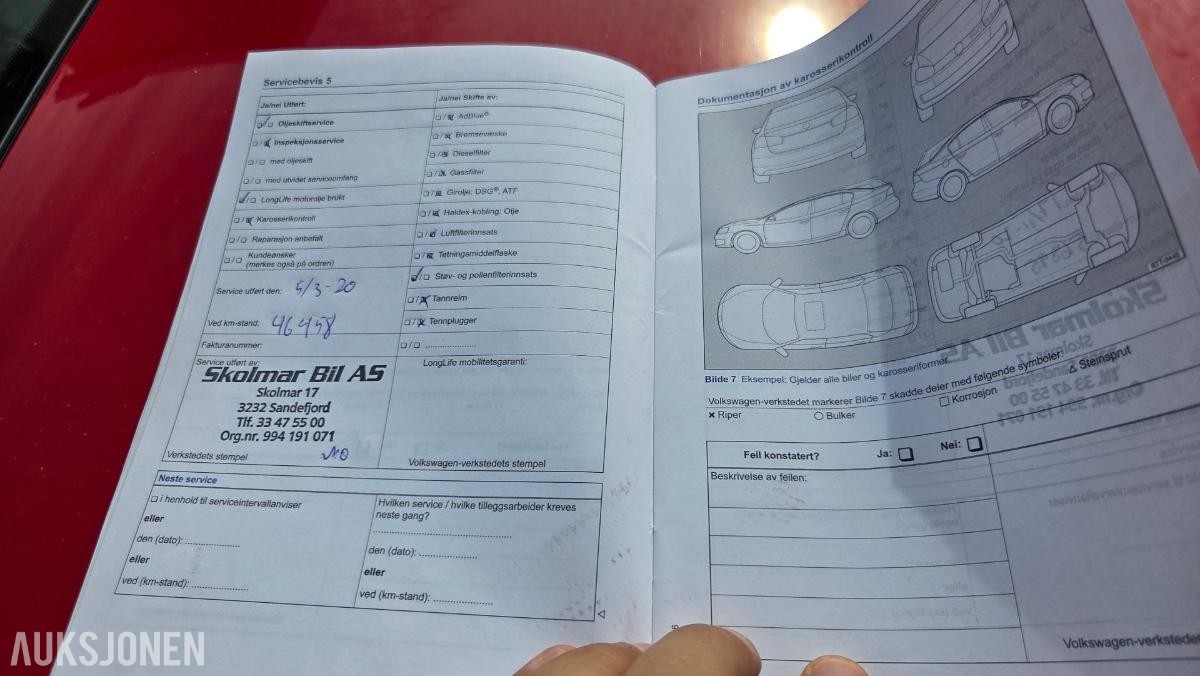 Servicebevis 5
Ja/nei Utført:
Oljeskiftservice
Inspeksjonsservice
med oljeskift
med utvidet serviceomfang
LongLife motorolje brukt
Karosserikontroll
Reparasjon anbefalt
Kundeønsker
(merkes også på ordren)
Service utført den: 5/3-20
Ved km-stand: 46458
Fakturanummer:
Ja/nei Skifte av:
AdBlue®
Bremsevæske
Dieselfilter
Gassfilter
Girolje: DSG®, ATF
Haldex-kobling: Olje
Luftfilterinnsats
Tetningsmiddelflaske
Støv- og pollenfilterinnsats
Tannreim
Tennplugger
Service utført av:
Skolmar Bil AS
Skolmar 17
3232 Sandefjord
Tlf. 33 47 55 00
Org.nr. 994 191 071
Verkstedets stempel
LongLife mobilitetsgaranti:
Volkswagen-verkstedets stempel
Neste service
i henhold til serviceintervallanviser
eller
den (dato):
eller
ved (km-stand):
Hvilken service / hvilke tilleggsarbeider kreves
neste gang?
den (dato):
eller
ved (km-stand):
Dokumentasjon av karosserikontroll
Bilde 7 Eksempel: Gjelder alle biler og karosseriformer.
Volkswagen-verkstedet markerer Bilde 7 skadde deler med følgende symboler:
Riper
Bulker
Korrosjon
Steinsprut
Feil konstatert? Ja: Nei:
Beskrivelse av feilen:
Volkswagen-verkstedet
AUKSJONEN